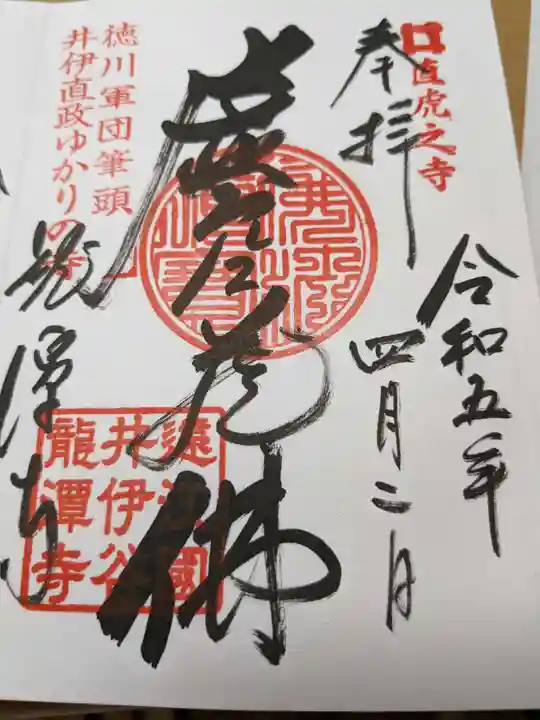 直虎之寺
奉拝
令和五年
四月二日
虚空蔵佛
佛法僧寶
徳川軍団筆頭
井伊直政ゆかりの寺
龍潭寺
遠江國
井伊谷
龍潭寺